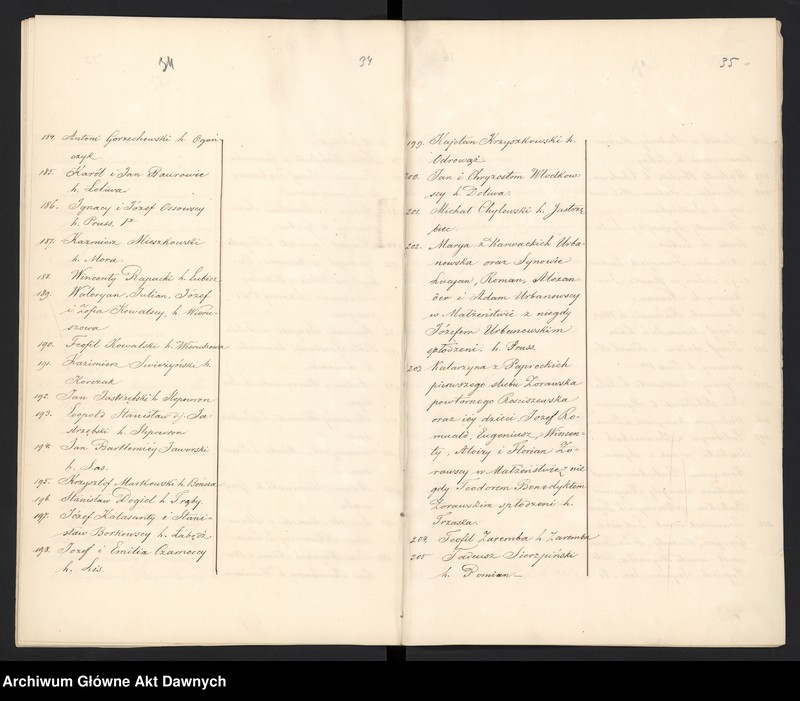 34
34
184. Antoni Gorzechowski h. Ogoń
czyk
185. Karól i Jan Baurowie
h. Leliwa
186. Ignacy i Józef Ossowscy
h. Pruss. 1º
187. Kazimierz Mieszkowski
h. Mora.
188. Wincenty Rapacki h. Lubicz
189. Waleryan, Julian, Józef
i Zofia Kowalscy, h. Wieru-
szowa
190. Teofil Kowalski h. Wieruszowa
191. Kazimierz Swieżyński h.
Korczak
192. Jan Jastrzębski h. Ślepowron
193. Leopold Stanisław Ja-
strzębski h. Ślepowron
194. Jan Bartłomiéj Jaworski
h. Jas.
195. Krzysztof Martkowski h. Bończa
196. Stanisław Dogiel h. Trąby.
197. Józef Kalasanty i Stani-
sław Borkowscy h. Łabędź
198. Józef i Emilia Czarnoccy
h. Lis.
35
199. Kajetan Krzyszkowski h.
Odrowąż
200. Jan i Chryzostom Włodkow-
scy h. Doliwa.
201. Michał Chylewski h. Jastrzę
biec.
202. Marya z Karwackich Urba-
nowska oraz Synowie
Lucyan, Roman, Alexan
der i Adam Urbanowscy
w Małżeństwie z niegdy
Józefem Urbanowskim
spłodzeni. h. Pruss.
203. Katarzyna z Paprockich
pierwszego ślubu Żorawska
powtórnego Rościszewska
oraz iéj dzieci Józef Ro-
muald, Eugeniusz, Wincen-
ty, Aloizy i Florian Żo-
rawscy w Małżeństwie z nie
gdy Teodorem Benedyktem
Żorawskim spłodzeni h.
Trzaska.
204. Teofil Zaremba h. Zaremba
205 Tadeusz Sierzpiński
h. Pomian
Archiwum Główne Akt Dawnych